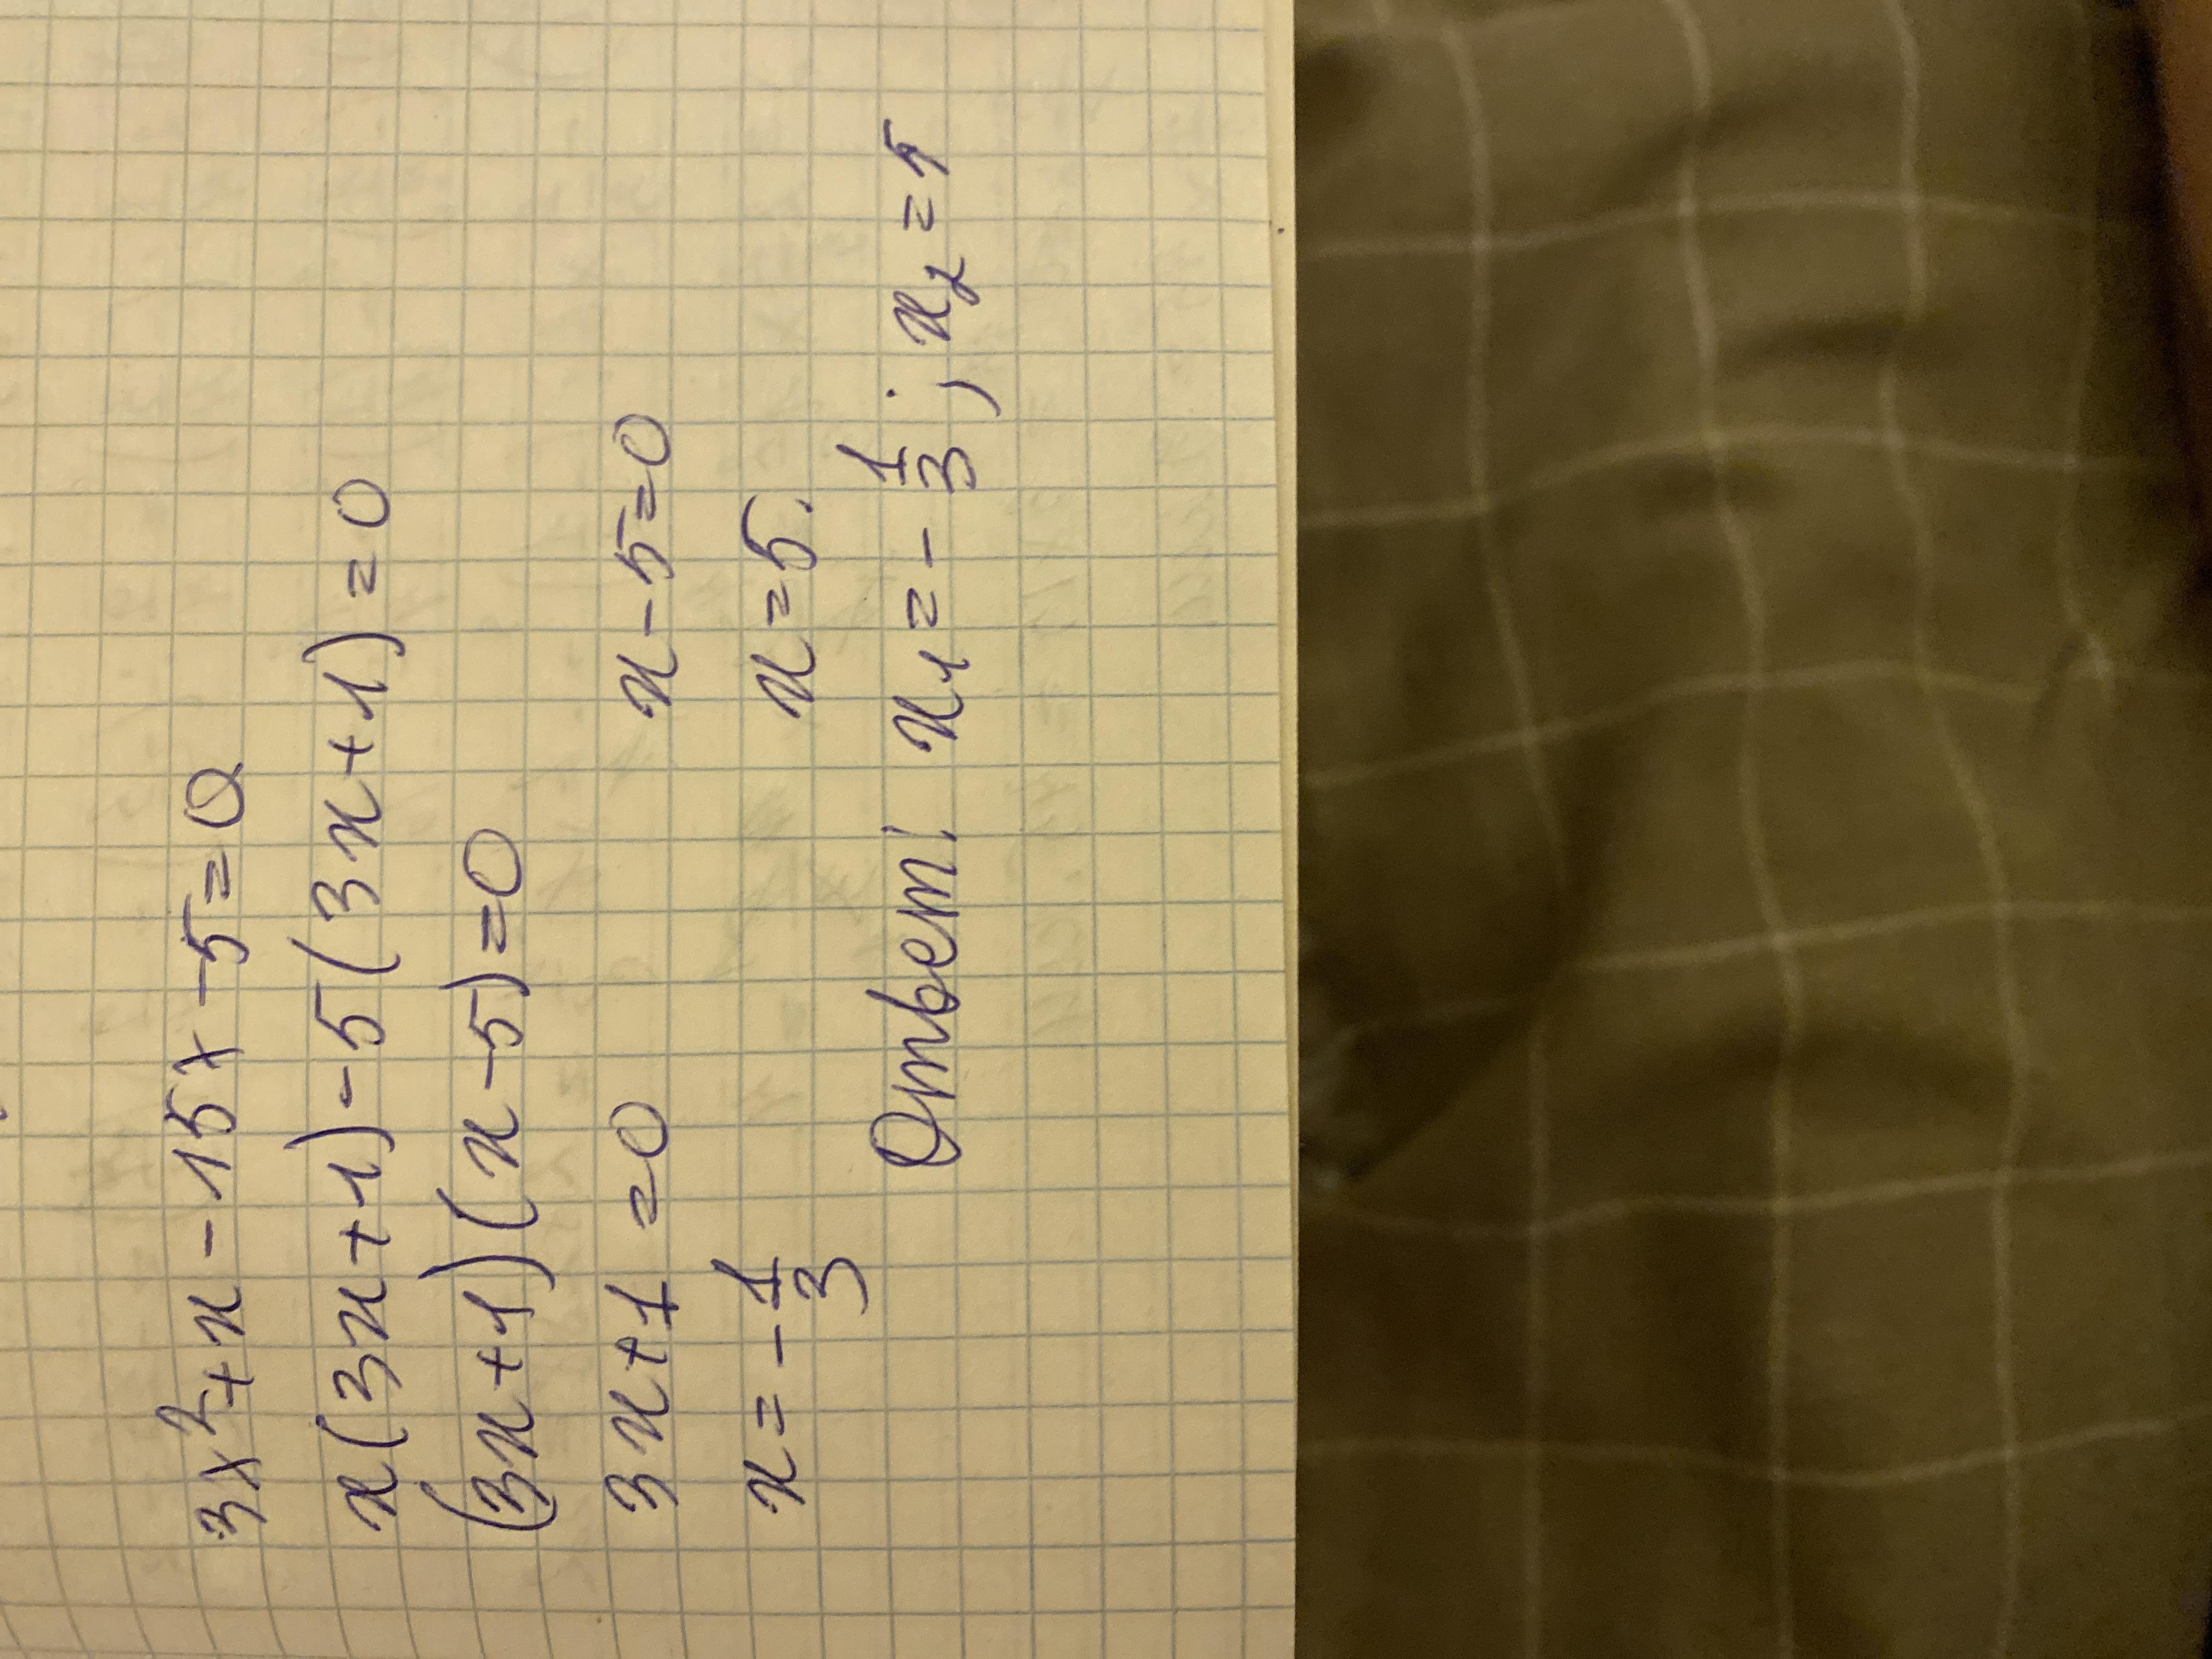 3x²+x-15x-5=0
x(3x+1)-5(3x+1)=0
(3x+1)(x-5)=0
3x+1=0 x-5=0
x=-1/3 x=5.
Ответ: x₁=-1/3; x₂=5